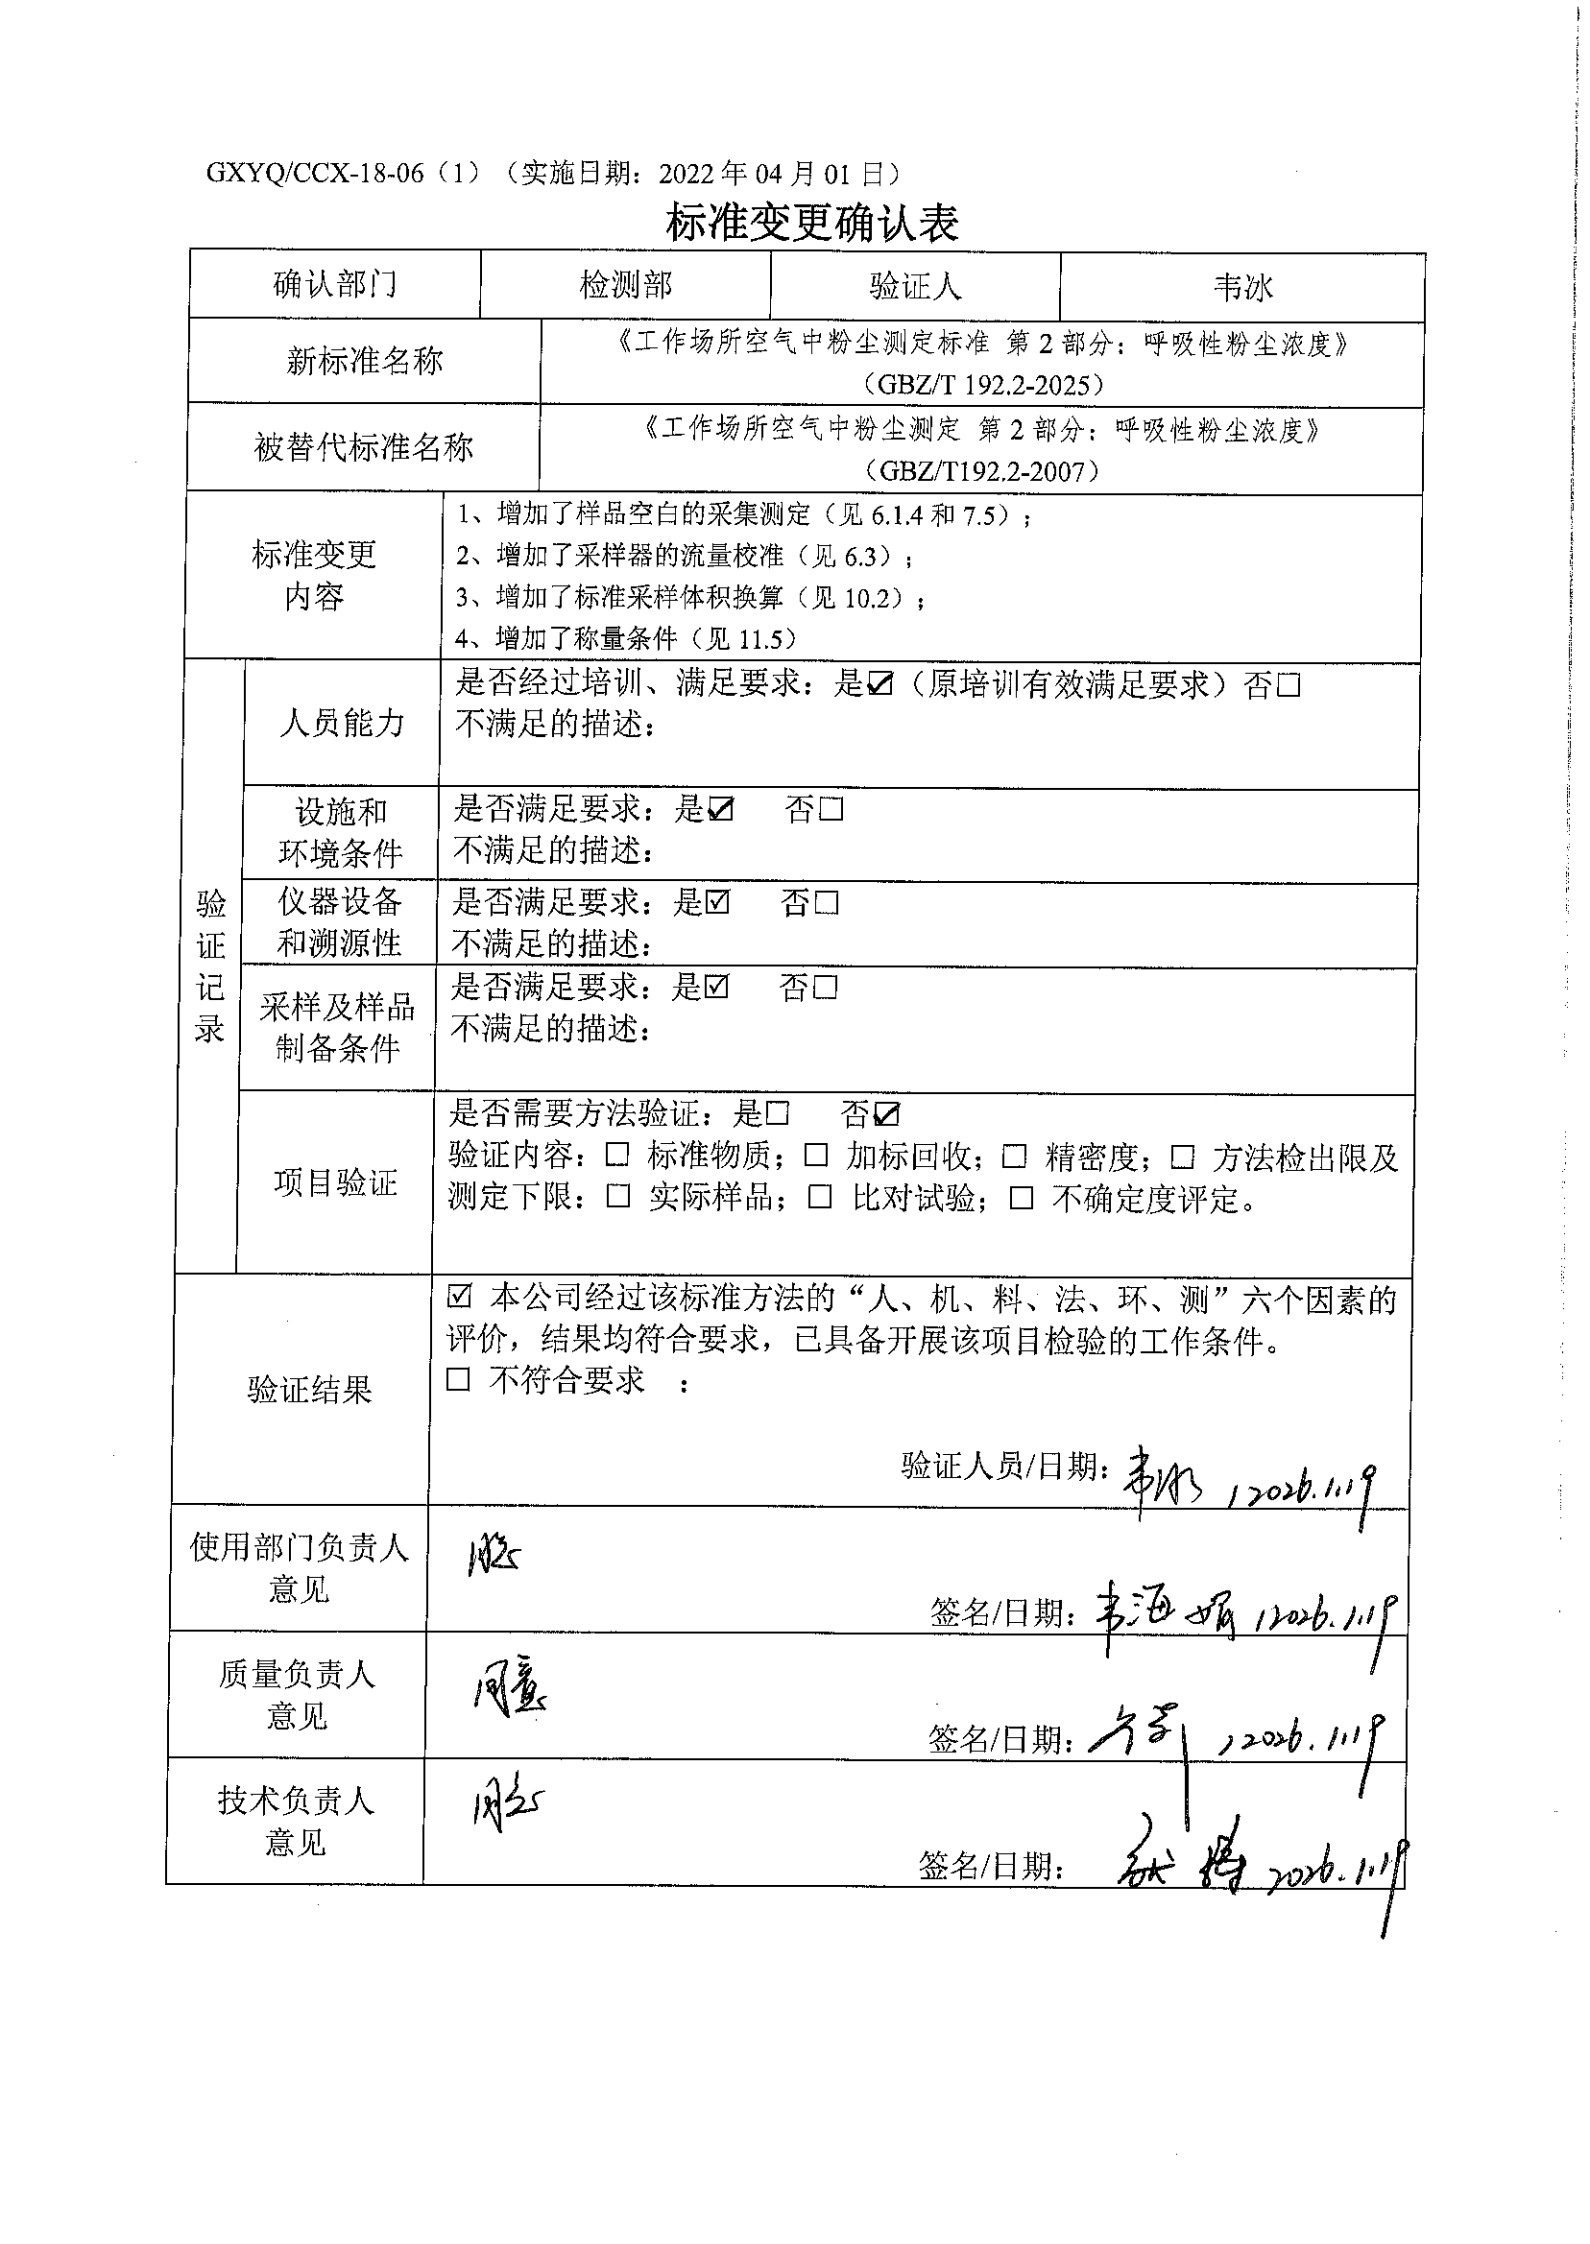 GXYQ/CCX-18-06（1）（实施日期：2022 年 04 月 01 日）
标准变更确认表
确认部门 检测部 验证人 韦冰
新标准名称
《工作场所空气中粉尘测定标准 第 2 部分：呼吸性粉尘浓度》
（GBZ/T 192.2-2025）
被替代标准名称
《工作场所空气中粉尘测定 第 2 部分：呼吸性粉尘浓度》
（GBZ/T192.2-2007）
标准变更
内容
1、增加了样品空白的采集测定（见 6.1.4 和 7.5）；
2、增加了采样器的流量校准（见 6.3）；
3、增加了标准采样体积换算（见 10.2）；
4、增加了称量条件（见 11.5）
验证记录
人员能力
是否经过培训、满足要求：是☑（原培训有效满足要求）否□
不满足的描述：
设施和
环境条件
是否满足要求：是☑ 否□
不满足的描述：
仪器设备
和溯源性
是否满足要求：是☑ 否□
不满足的描述：
采样及样品
制备条件
是否满足要求：是☑ 否□
不满足的描述：
项目验证
是否需要方法验证：是□ 否☑
验证内容：□ 标准物质；□ 加标回收；□ 精密度；□ 方法检出限及
测定下限：□ 实际样品；□ 比对试验；□ 不确定度评定。
验证结果
☑ 本公司经过该标准方法的“人、机、料、法、环、测”六个因素的
评价，结果均符合要求，已具备开展该项目检验的工作条件。
□ 不符合要求 ：
验证人员/日期：韦冰 / 2026.1.19
使用部门负责人
意见
同意
签名/日期：韦海娟 / 2026.1.19
质量负责人
意见
同意
签名/日期： / 2026.1.19
技术负责人
意见
同意
签名/日期： 2026.1.19